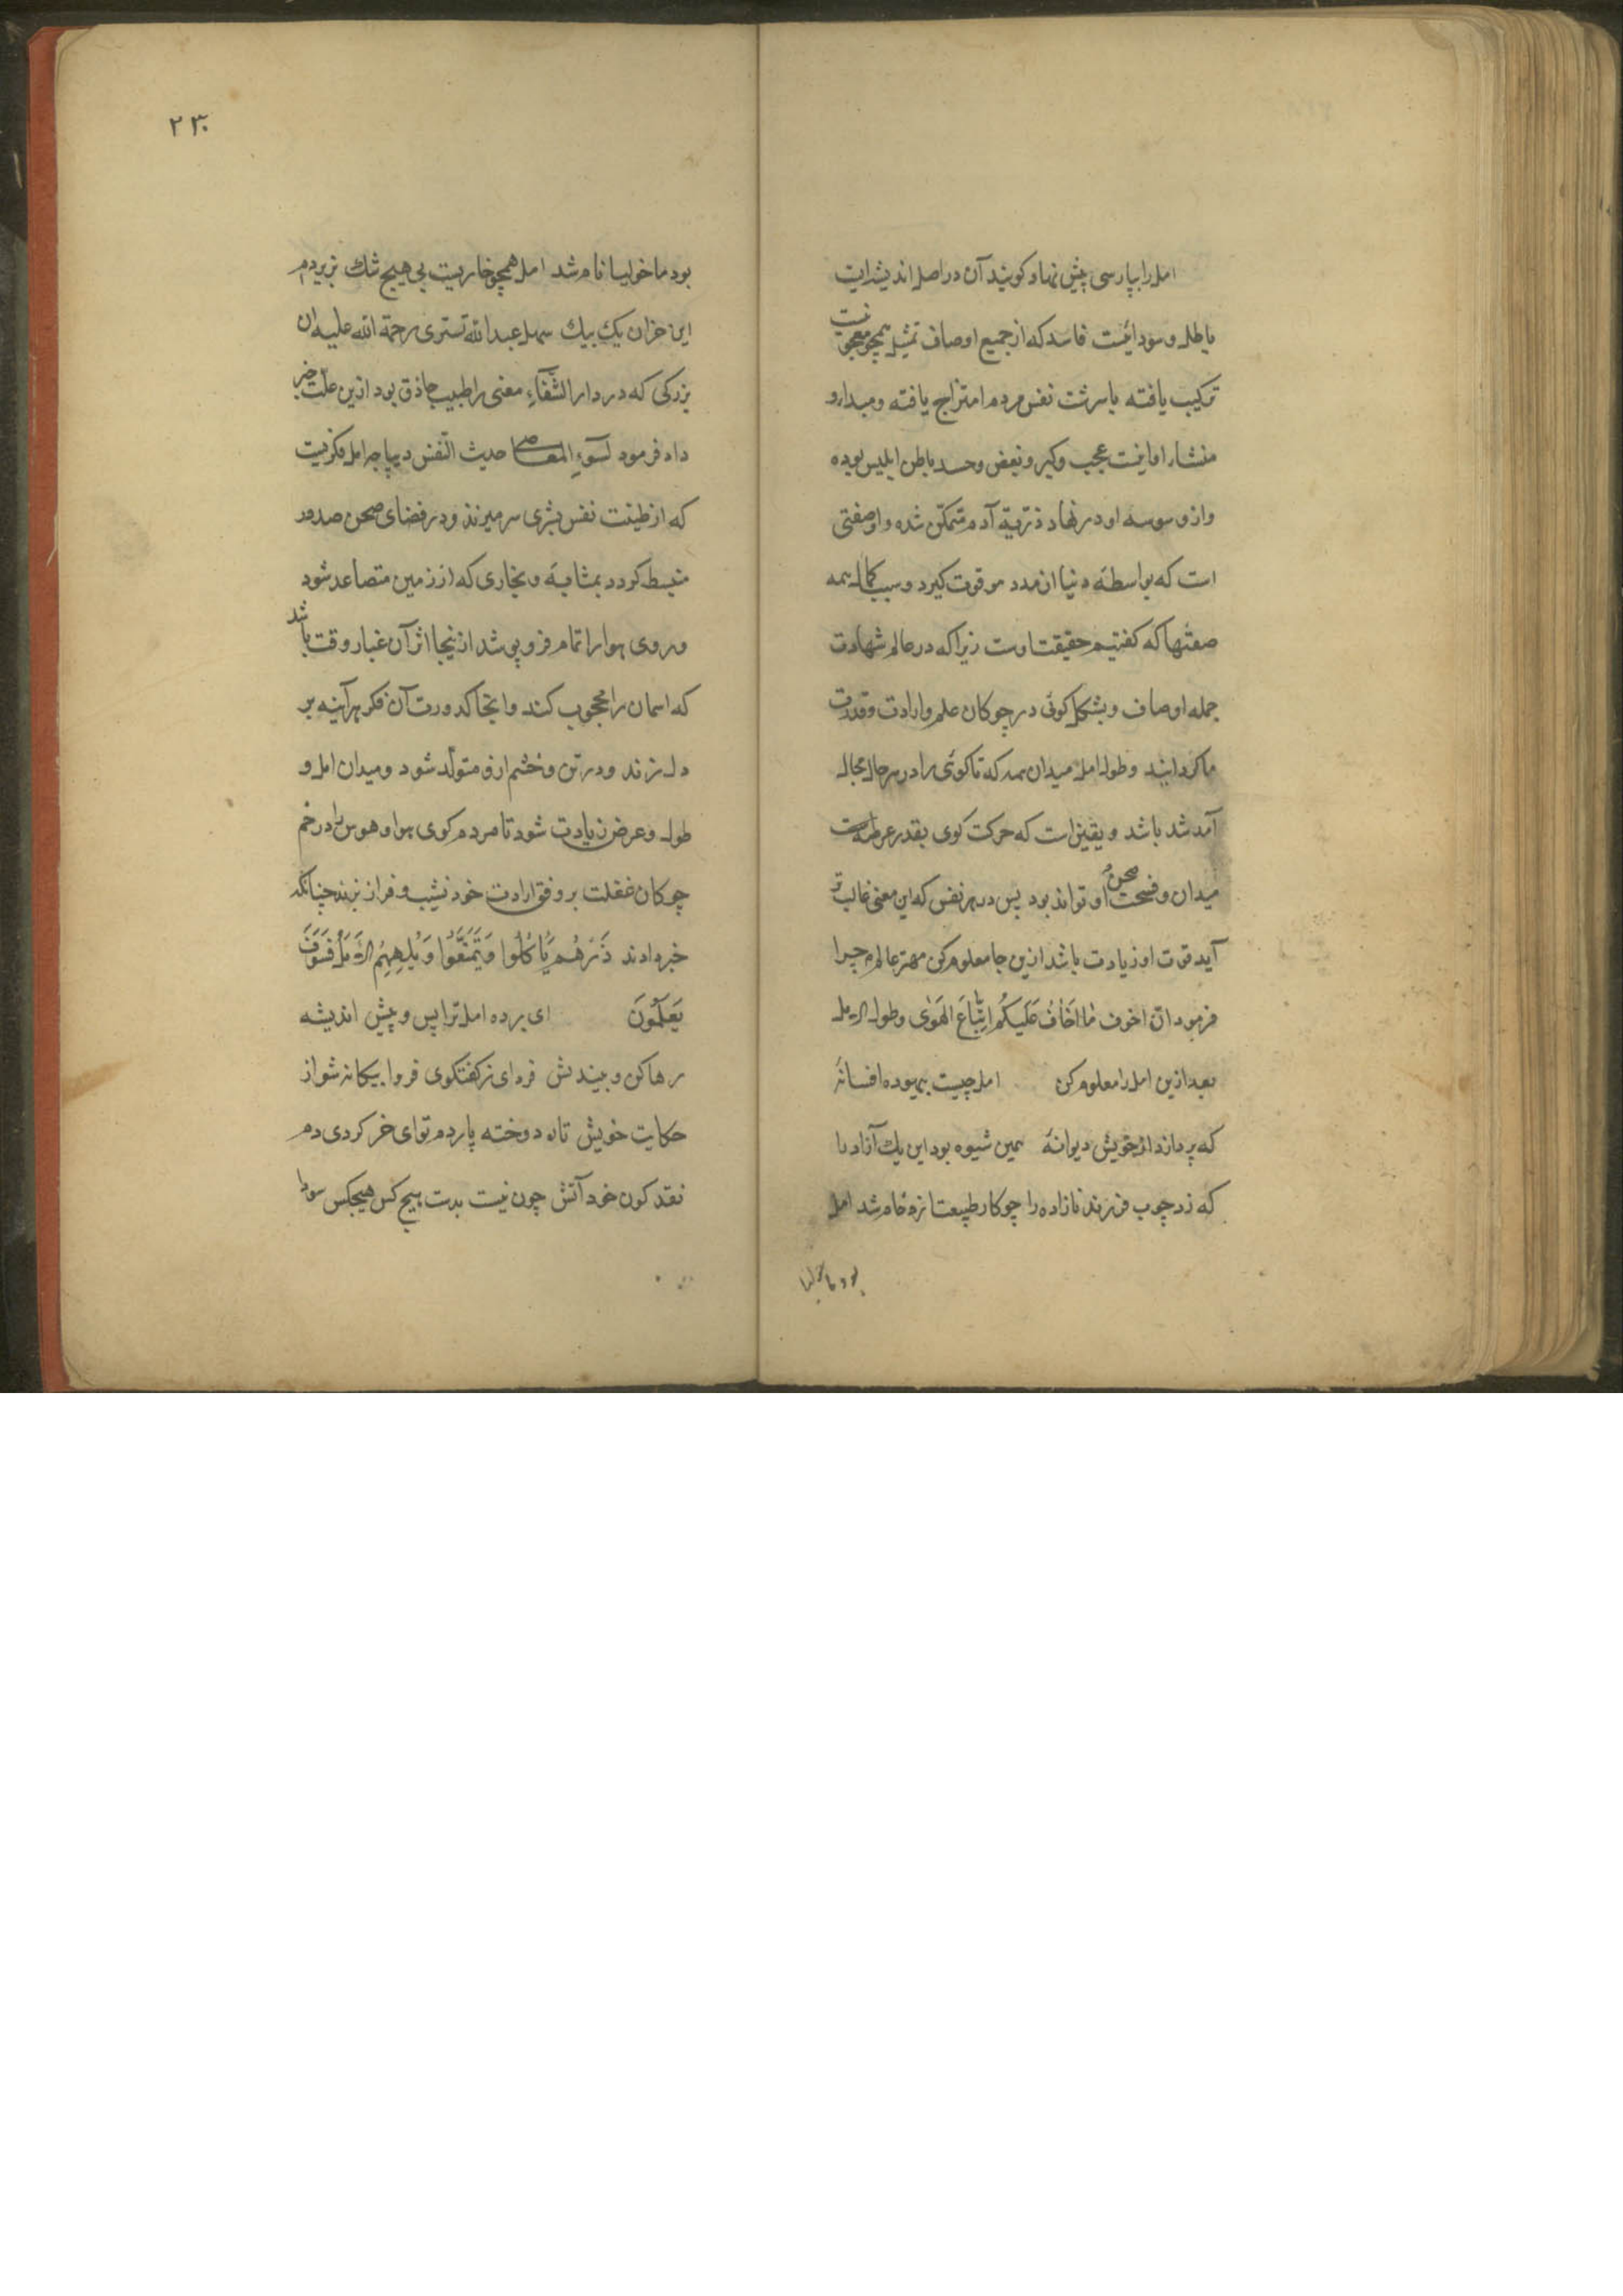 امل را بپارسی پیش نهاد کویند آن در اصل اندیشه‌ایست
باطل و سودائیست فاسد که از جمیع اوصاف تمثیل همچو معجونیست
ترکیب یافته با سرشت نفس مردم امتزاج یافته و مبداء او
منشاء او اینست عجب و کبر و بغض و حسد باطن ابلیس بوده
واز وسوسه او در نهاد ذرّیة آدم متمکّن شده و او صفتی
است که بواسطه دنیا ازمدد مو قوت کیرد و سبب کمال همه
صفتها که کفتیم حقیقت اوست زیرا که در عالم شهادت
جمله اوصاف و بشکل کوئی در چوکان علم و ارادت و قدرت
ما کردانند و طول امل میدان همه که تا کوئی را در هر حال مجال
آمد شد باشد و یقین است که حرکت کوی بقدر عرصه
میدان و فسحت صحن او تواند بود پس در هر نفس که این معنی غالب تر
آید قوت او زیادت باشد ازین جا معلوم کن مهتر عالم چرا
فرمود انّ اخوف ما اَخَافُ عَلَیکُم اِتِّبَاعَ الهَوٰی وطول الامل
بعد ازین امل را معلوم کن امل چیست بیهوده افسانهٔ
که پردازد از خویش دیوانهٔ همین شیوه بود این یك آزاد را
که زد چوب فرزند نازاده را چو کار طبیعت از خام شد امل
بود ماخولیا
۲۳۰
بود ماخولیا نام شد امل همچو خاریست بی هیچ شك بزیر دم
این خران یك بیك سهل عبدالله تستری رحمة الله علیه ان
بزرکی که در دار الشّفآءِ معنی را طبیب حاذق بود ازین علّت خبر
داد فرمود لسوٓءِ المعاصی حدیث النّفس دیباجه امل فکریست
که از طینت نفس بشری سر میزند و در فضای صحن صدور
منبسط کردد بمثابهٔ و بخاری که از زمین متصاعد شود
و روی هوا را تمام فرو پوشد از ینجا اثر آن غبار وقت باشد
که اسمان را محجوب کند و اینجا کدورت آن فکر بر آینه بر
دل زند و درتن و خشم ازو متولّد شود و میدان امل و
طول و عرض زیادت شود تا مردم کوی هوا و هوس را در خم
چوکان غفلت بر وفق ارادت خود نشیب و فراز بزند چنانکه
خبر دادند ذَرْهُمْ یَأکُلُوا وَیَتَمَتَّعُوا وَیُلْهِهِمُ الاَمَلُ فَسَوْفَ
یَعلَمُونَ ای برده امل ترا پس و پیش اندیشه
رها کن و بیندیش فردای ز کفتکوی فردا بیکانه شو از
حکایت خویش تات دوخته پاردم توای خر کردی دم
نقد کون خود آتش چون نیست بدست هیچ کس هیچکس سودا